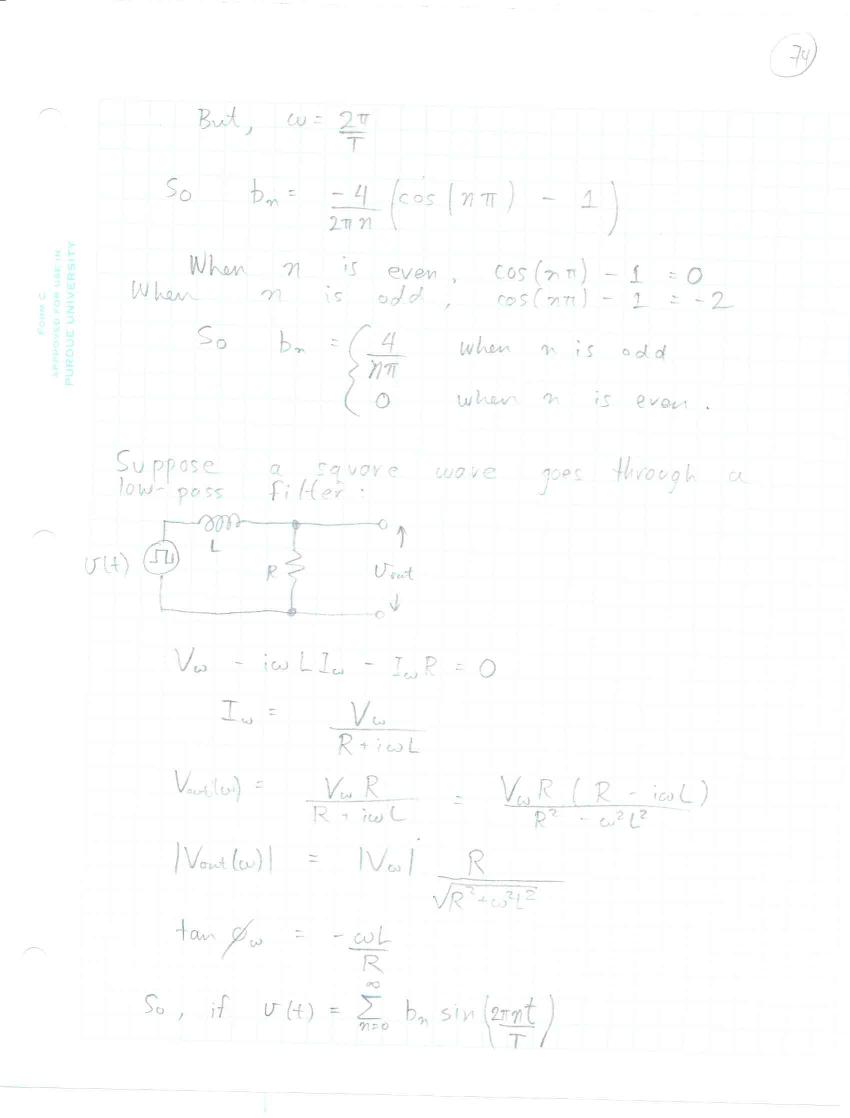 74
But, ω = 2π/T
So bₙ = -4/2πn (cos(nπ) - 1)
When n is even, cos(nπ) - 1 = 0
When n is odd, cos(nπ) - 1 = -2
So bₙ = { 4/nπ when n is odd
0 when n is even.
FORM C
APPROVED FOR USE IN
PURDUE UNIVERSITY
Suppose a square wave goes through a
low-pass filter:
L
v(t) R Vout
V_ω - iωL I_ω - I_ω R = 0
I_ω = V_ω / (R + iωL)
Vout(ω) = V_ω R / (R + iωL) = V_ω R (R - iωL) / (R² - ω²L²)
|Vout(ω)| = |V_ω| R / √(R² + ω²L²)
tan φ_ω = -ωL/R
So, if v(t) = ∑_{n=0}^{∞} bₙ sin(2πnt/T)